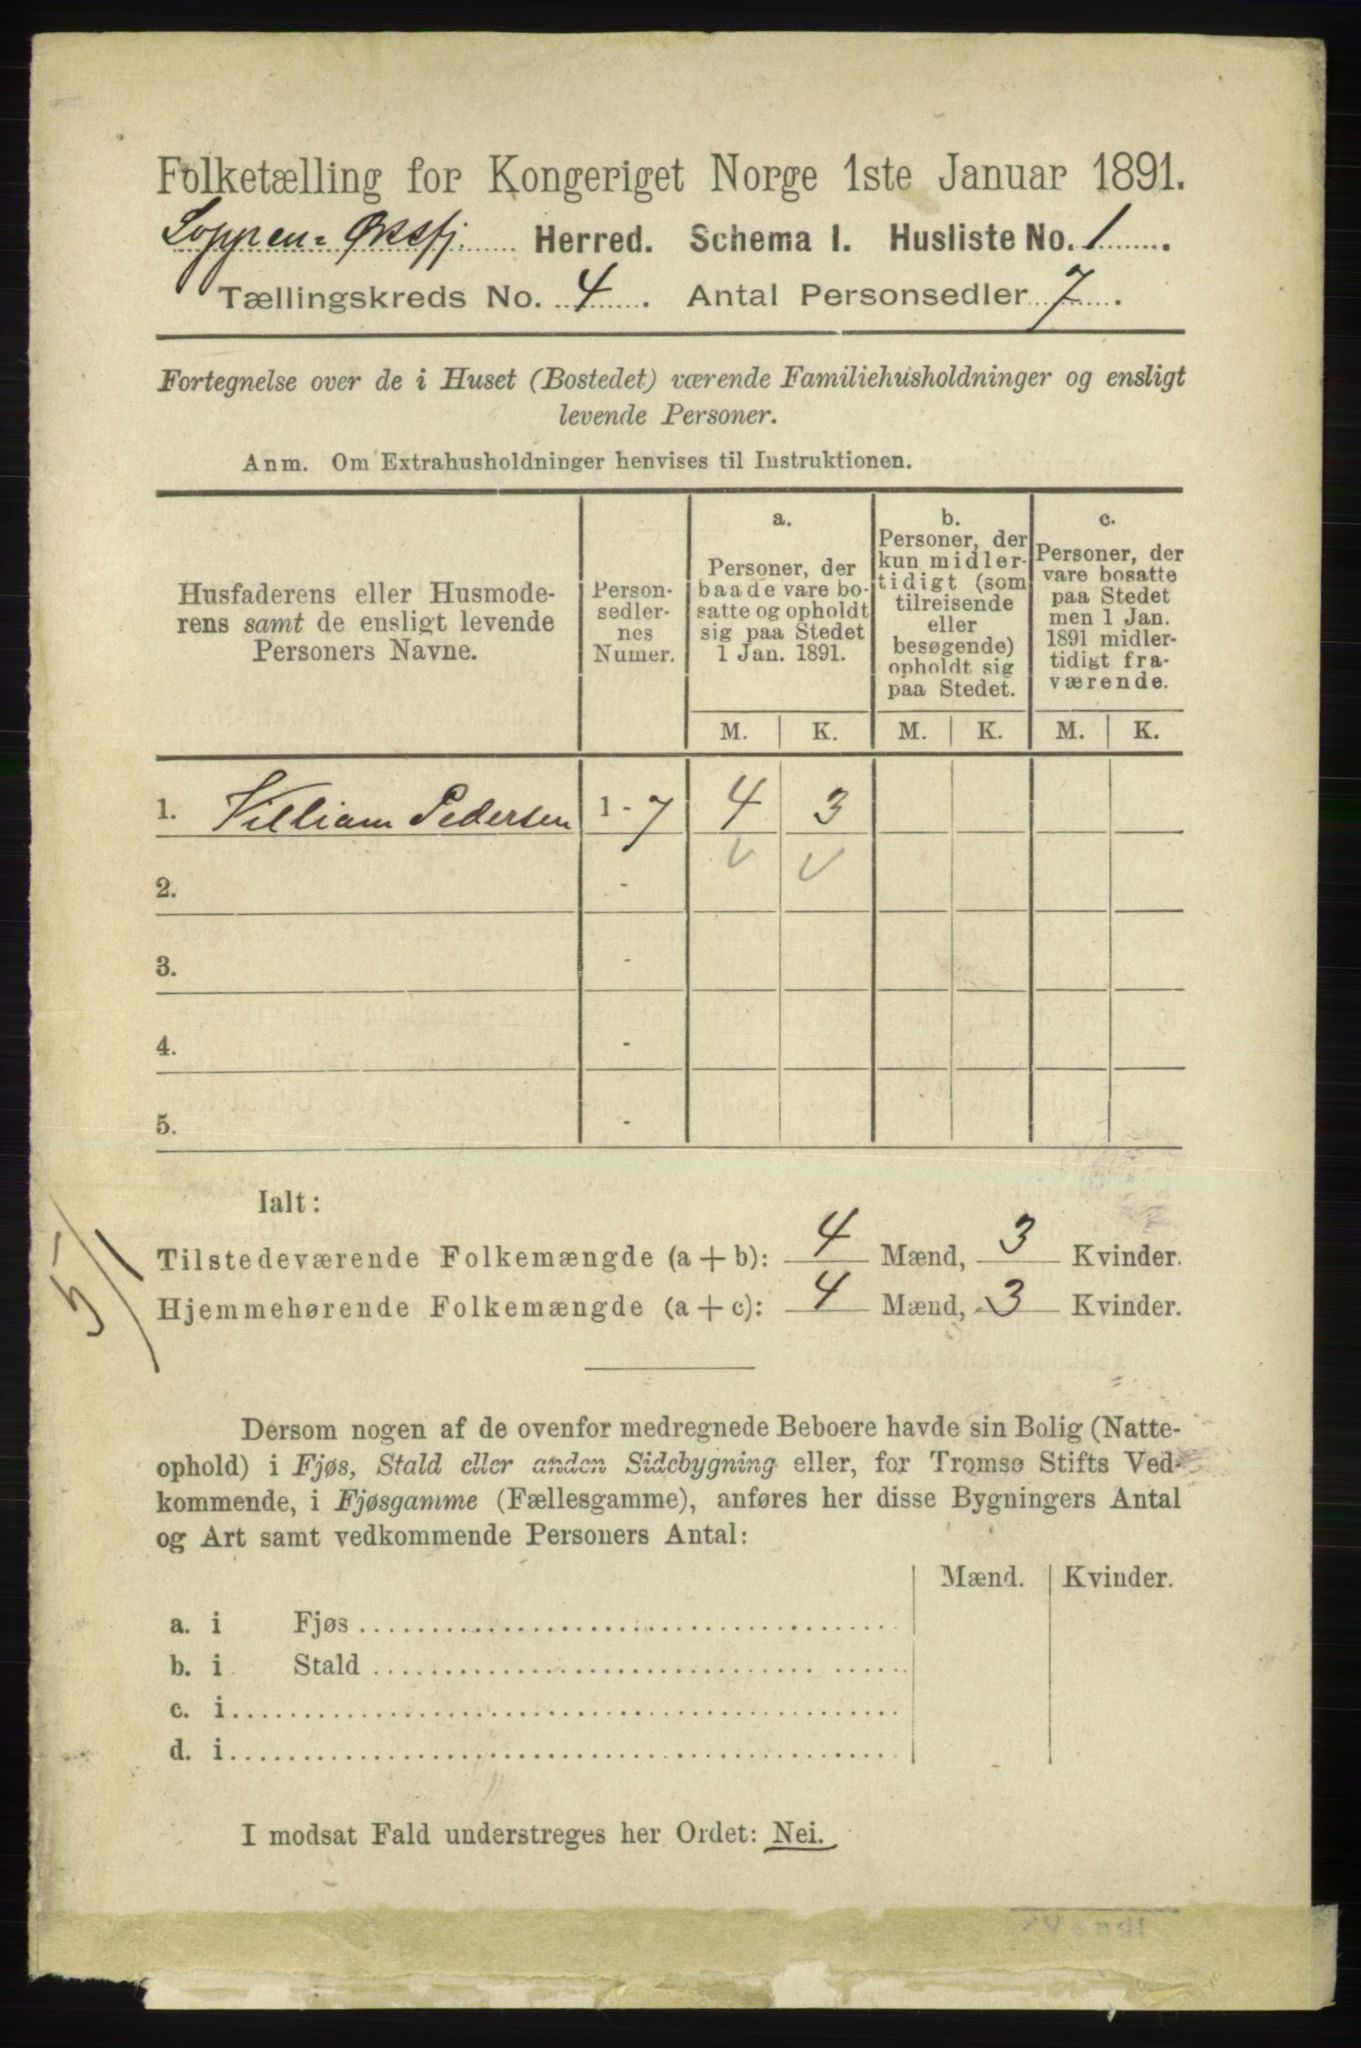 Folketælling for Kongeriget Norge 1ste Januar 1891.
Loppen-Øxsfj. Herred. Schema I. Husliste No. 1.
Tællingskreds No. 4. Antal Personsedler 7.
Fortegnelse over de i Huset (Bostedet) værende Familiehusholdninger og ensligt
levende Personer.
Anm. Om Extrahusholdninger henvises til Instruktionen.
Husfaderens eller Husmode-
rens samt de ensligt levende
Personers Navne.
Person-
sedler-
nes
Numer.
a.
Personer, der
baade vare bo-
satte og opholdt
sig paa Stedet
1 Jan. 1891.
b.
Personer, der
kun midler-
tidigt (som
tilreisende
eller
besøgende)
opholdt sig
paa Stedet.
c.
Personer, der
vare bosatte
paa Stedet
men 1 Jan.
1891 midler-
tidigt fra-
værende.
M. K. M. K. M. K.
1. William Pedersen 1 - 7 4 3
2. -
3. -
4. -
5. -
Ialt:
Tilstedeværende Folkemængde (a + b): 4 Mænd, 3 Kvinder.
Hjemmehørende Folkemængde (a + c): 4 Mænd, 3 Kvinder.
Dersom nogen af de ovenfor medregnede Beboere havde sin Bolig (Natte-
ophold) i Fjøs, Stald eller anden Sidebygning eller, for Tromsø Stifts Ved-
kommende, i Fjøsgamme (Fællesgamme), anføres her disse Bygningers Antal
og Art samt vedkommende Personers Antal:
Mænd. Kvinder.
a. i Fjøs
b. i Stald
c. i
d. i
I modsat Fald understreges her Ordet: Nei.